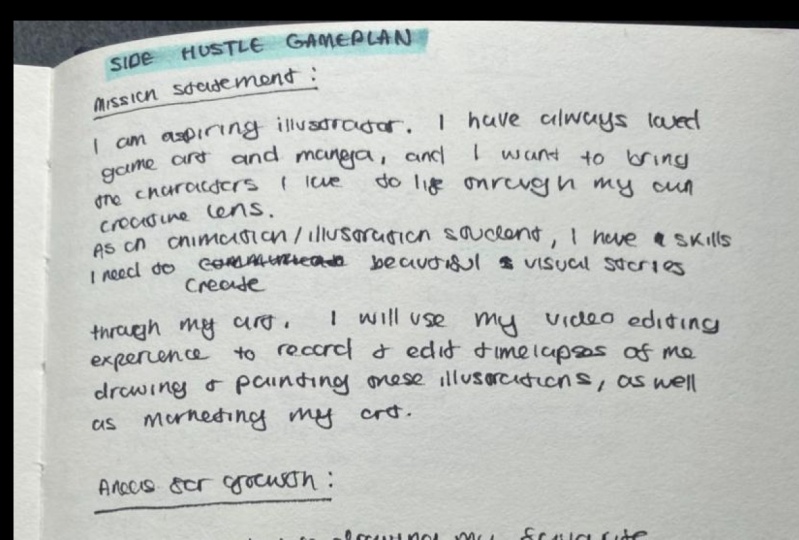 SIDE HUSTLE GAMEPLAN
Mission statement:
I am aspiring illustrator. I have always loved
game art and manga, and I want to bring
the characters I love to life through my own
creative lens.
As an animation/illustration student, I have skills
I need to beautiful visual stories
create
through my art. I will use my video editing
experience to record & edit timelapses of me
drawing & painting these illustrations, as well
as marketing my art.
Areas for growth:
drawing my favourite